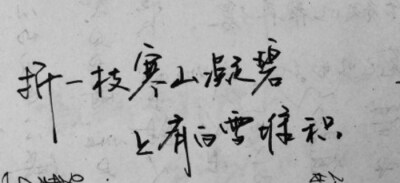 折一枝寒山凝碧
上有白雪堆积